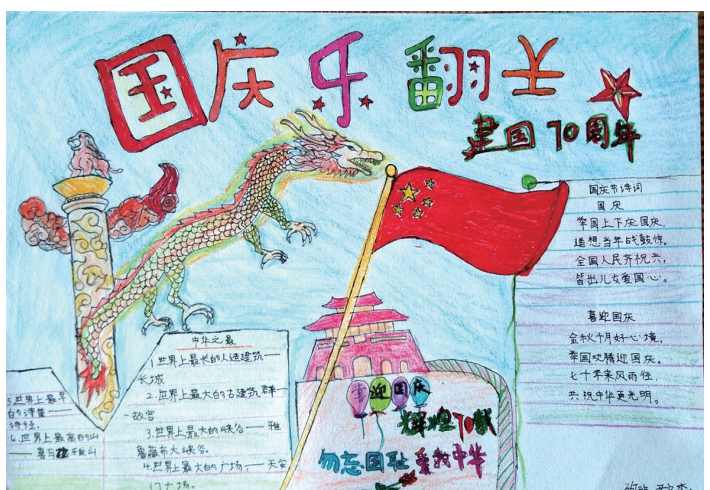 国庆乐翻天
建国70周年
国庆节诗词
国庆
举国上下庆国庆，
遥想当年战鼓惊。
全国人民齐祝兴，
皆出儿女爱国心。
喜迎国庆
金秋十月好心境，
举国欢腾迎国庆。
七十年来风雨径，
共祝中华更光明。
中华之最
1.世界上最长的人造建筑——
长城
2.世界上最大的古建筑群
—故宫
3.世界上最大的峡谷—雅
鲁藏布大峡谷。
4.世界上最大的广场，—天安
门广场。
5.世界上最早
的诗集——
诗经。
6.世界上最高的山
——喜马拉雅山
喜迎国庆
辉煌70载
勿忘国耻 爱我中华